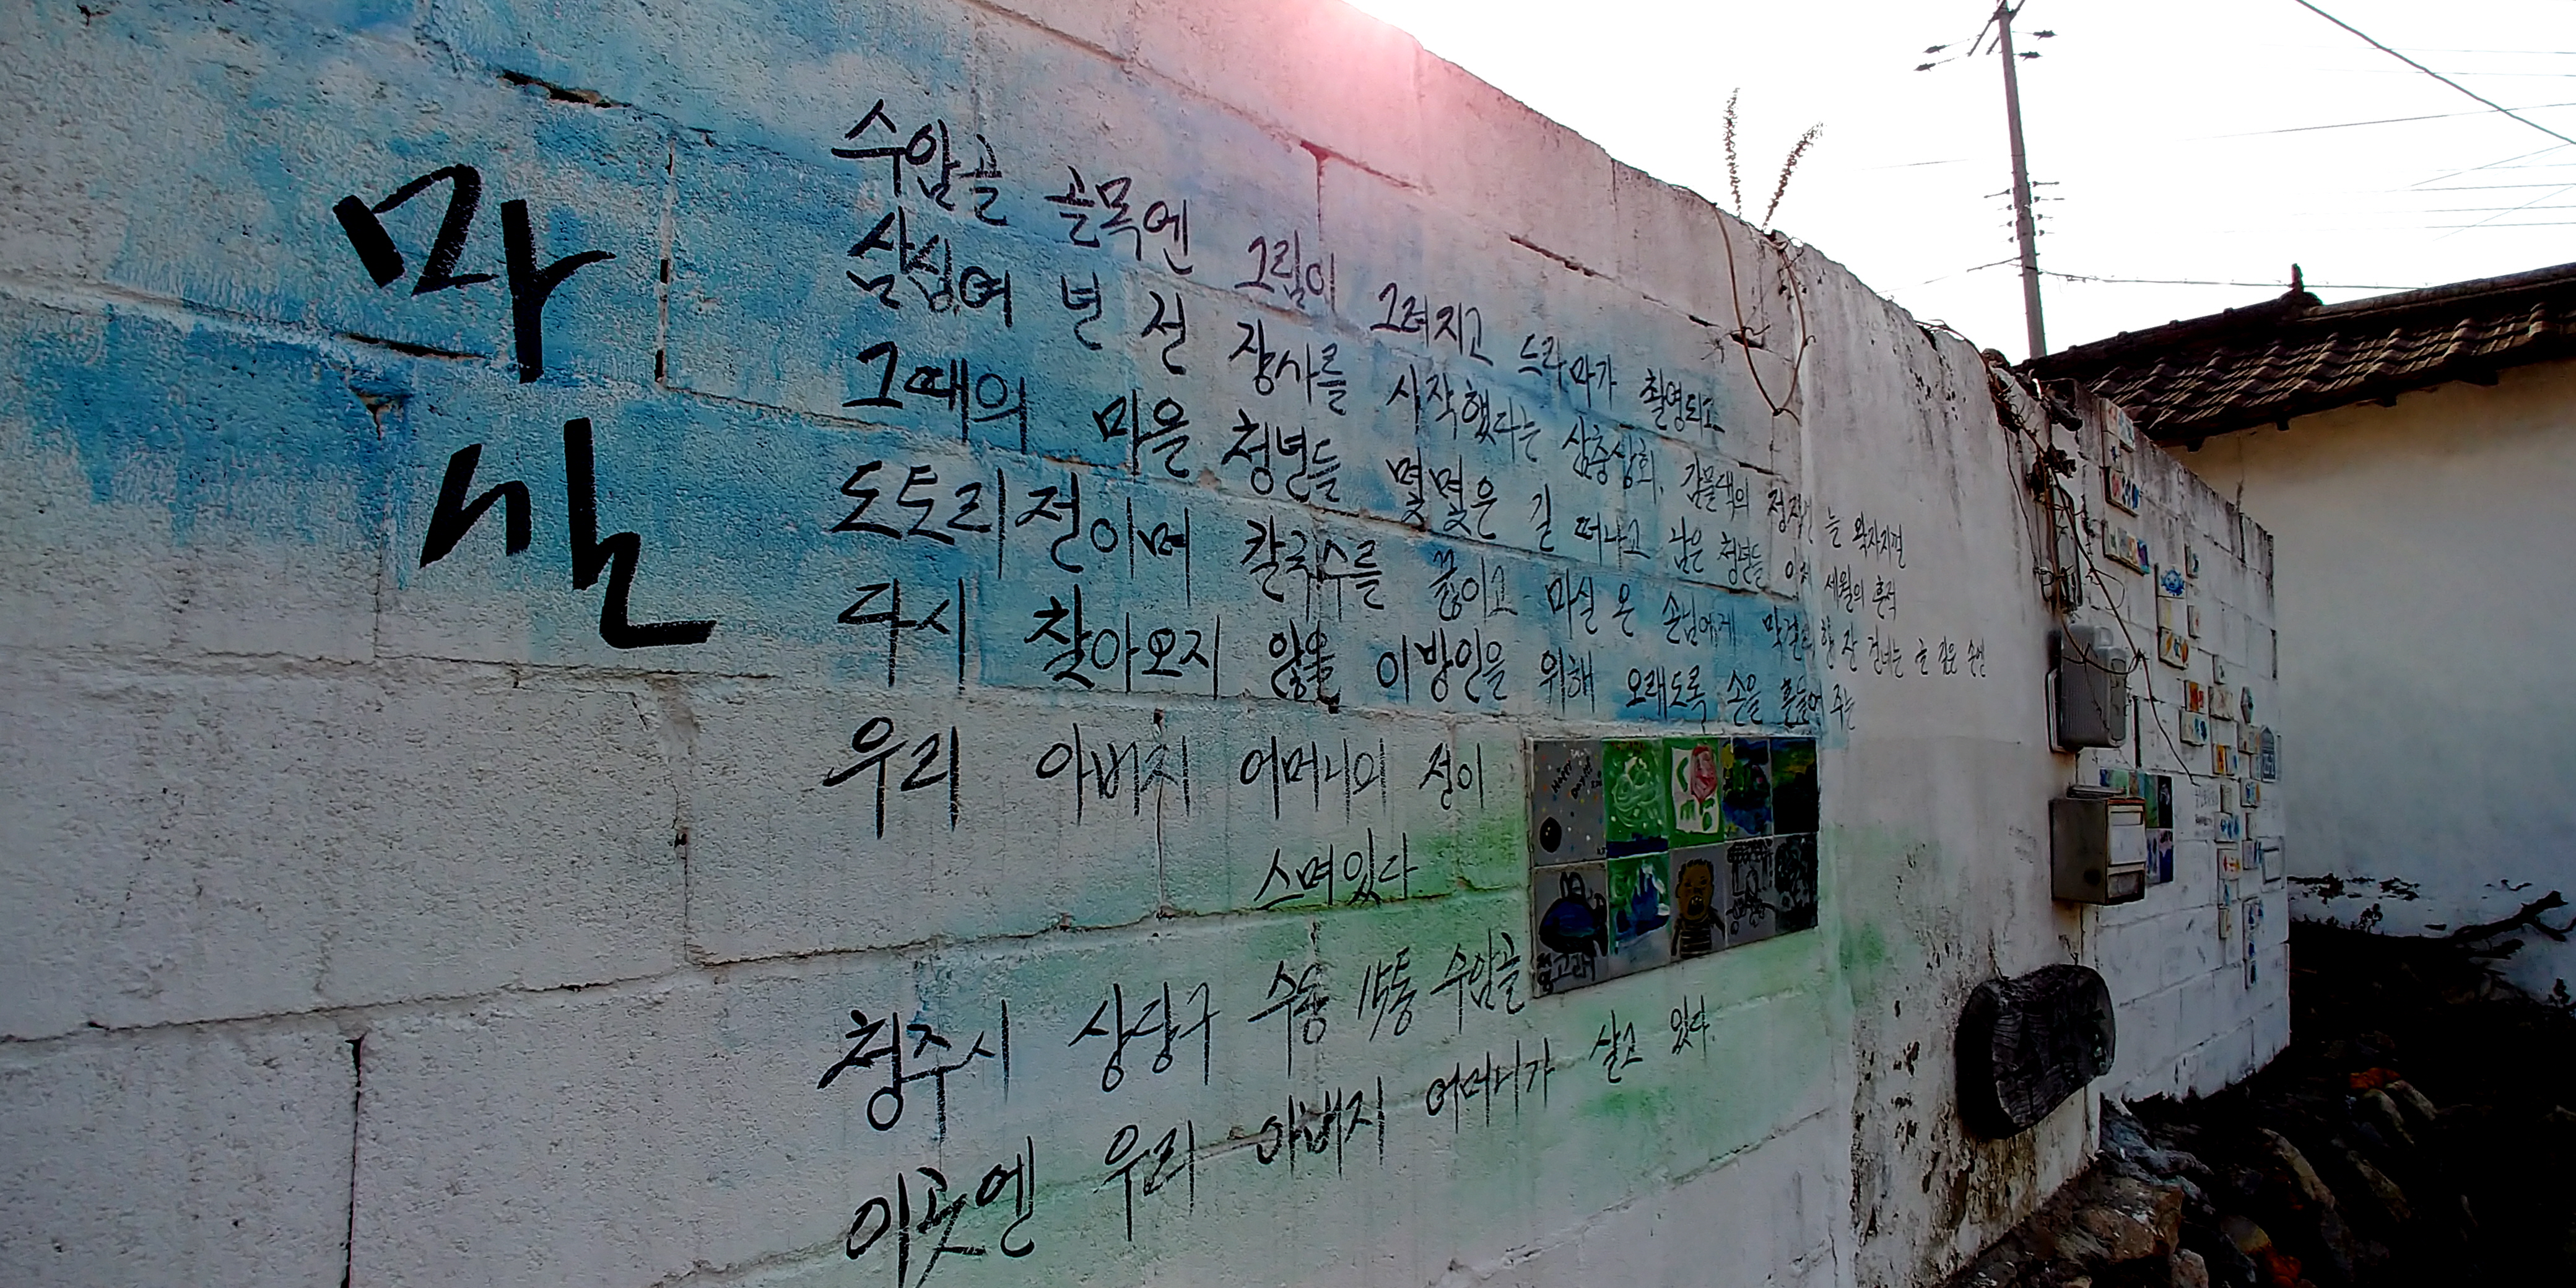 마실
수암골 골목엔 그림이 그려지고 드라마가 촬영되고
삼십여 년 전 장사를 시작했다는 삼충상회, 감물댁의 정직한 늘 왁자지껄
그때의 마을 청년들 몇몇은 길 떠나고 남은 청년들 이제 세월의 흔적
도토리전이며 칼국수를 끓이고 마실 온 손님에게 막걸리 한 잔 건네는 골 깊은 손엔
다시 찾아오지 않을 이방인을 위해 오래도록 손을 흔들어 주는
우리 아버지 어머니의 정이
스며있다
청주시 상당구 수동 15통 수암골
이곳엔 우리 아버지 어머니가 살고 있다.
고래